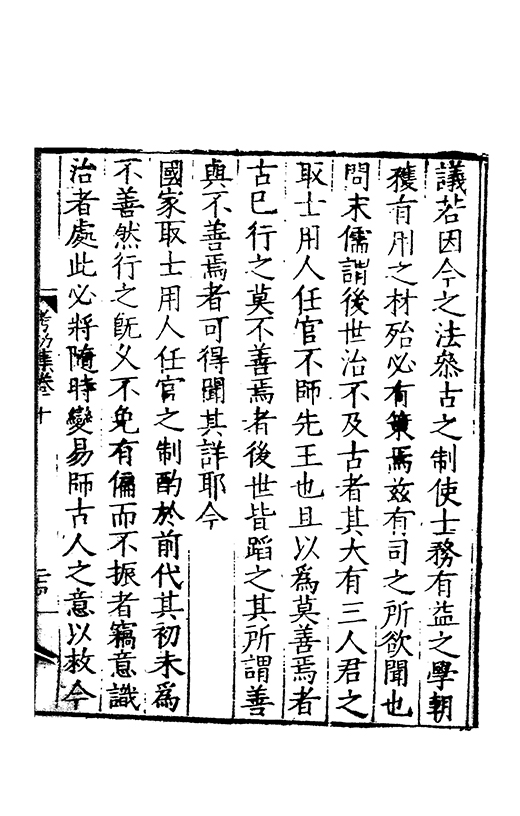 議若因今之法叅古之制使士務有益之學朝
獲有用之材殆必有策焉兹有司之所欲聞也
問末儒謂後世治不及古者其大有三人君之
取士用人任官不師先王也且以爲莫善焉者
古已行之莫不善焉者後世皆蹈之其所謂善
與不善焉者可得聞其詳耶今
國家取士用人任官之制酌於前代其初未爲
不善然行之旣乆不免有偏而不振者竊意識
治者處此必將隨時變易師古人之意以救今
考功集卷十